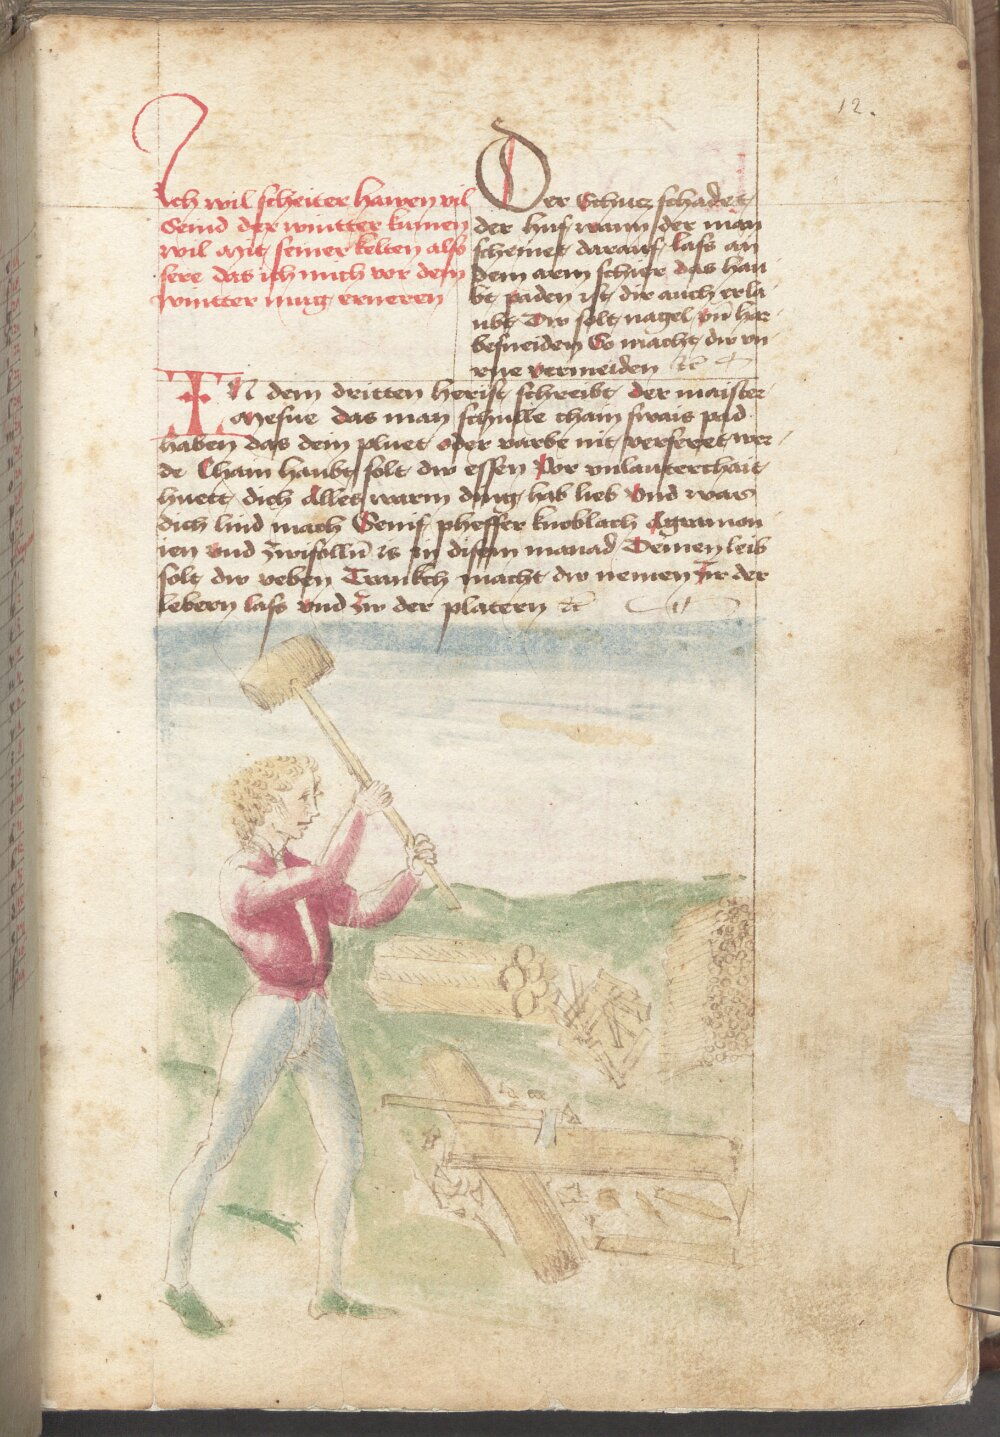 12.
Ich wil scheiter hawen vil
Seind der wintter kumen
wil Mit seiner kelten also
sere das ich mich vor dem
wintter mug erneren
Der Schucz schadet
der huf wann der man
scheinet darauf lass an
dem arm schier das hau
bt paden ist dir auch erla
ubt Dw solt nagel vn har
besneiden So macht dw vn
rue vermeiden etc
IN dem dritten herist schreibt der maister
Mesue das man schulle cham swais pad
haben das dem pluet oder varbe nit verseret wer
de Chain haubt solt dw essen Vor vnlauterchait
huett dich Alles warm ding hab lieb Vnd was
dich lind mach Senif pheffer knoblach Agramon
ien vnd Zwifolln is in disem manad Deinen leib
solt dw veben Trankch macht dw nemen Zw der
lebern lass vnd Zw der platern etc